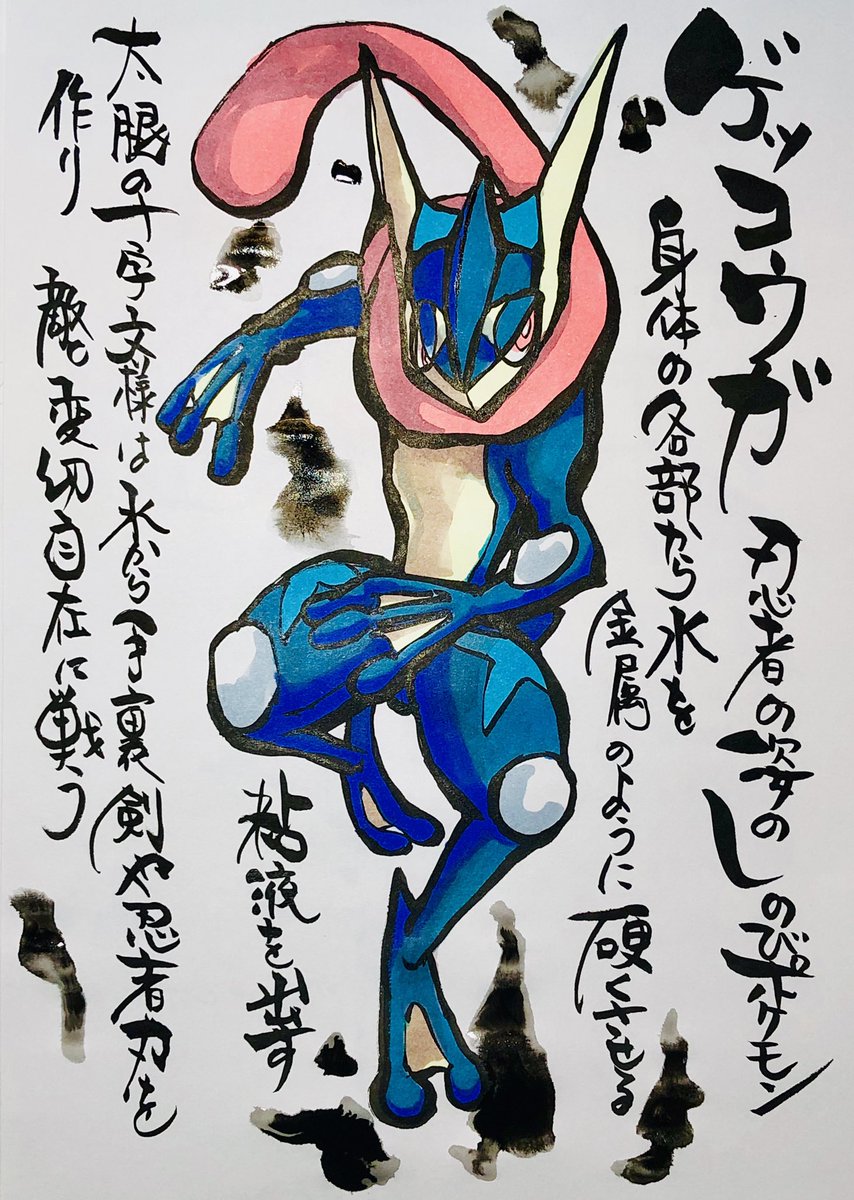 ゲッコウガ
忍者の姿の
しのびポケモン
身体の各部から水を
金属のように
硬くさせる
粘液を出す
太腿の十字文様は水から手裏剣や忍者刃を
作り
敵と変幻自在に戦う